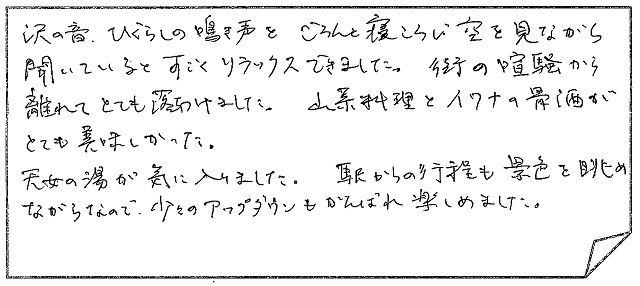 沢の音、ひぐらしの鳴き声を ごろんと寝ころじ 空を見ながら
聞いていると すごくリラックスできました。 街の喧騒から
離れて とても落ちつけました。 山菜料理とイワナの骨酒が
とても美味しかった。
天女の湯が気に入りました。 駅からの行程も景色を眺め
ながらなので、少々のアップダウンもがんばれ楽しめました。